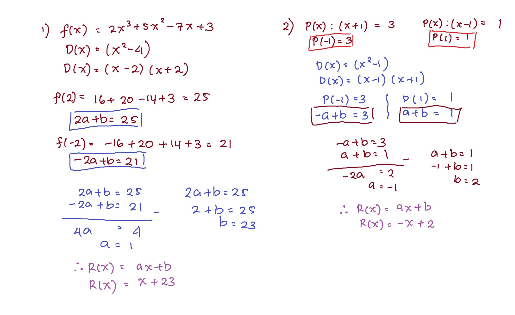 1) f(x) = 2x³ + 5x² - 7x + 3
D(x) = (x² - 4)
D(x) = (x - 2) (x + 2)
f(2) = 16 + 20 - 14 + 3 = 25
2a + b = 25
f(-2) = -16 + 20 + 14 + 3 = 21
-2a + b = 21
2a + b = 25
-2a + b = 21 -
4a = 4
a = 1
2a + b = 25
2 + b = 25
b = 23
∴ R(x) = ax + b
R(x) = x + 23
2) P(x) : (x + 1) = 3
P(-1) = 3
P(x) : (x - 1) = 1
P(1) = 1
D(x) = (x² - 1)
D(x) = (x - 1) (x + 1)
P(-1) = 3
-a + b = 3
D(1) = 1
a + b = 1
-a + b = 3
a + b = 1 -
-2a = 2
a = -1
a + b = 1
-1 + b = 1
b = 2
∴ R(x) = ax + b
R(x) = -x + 2